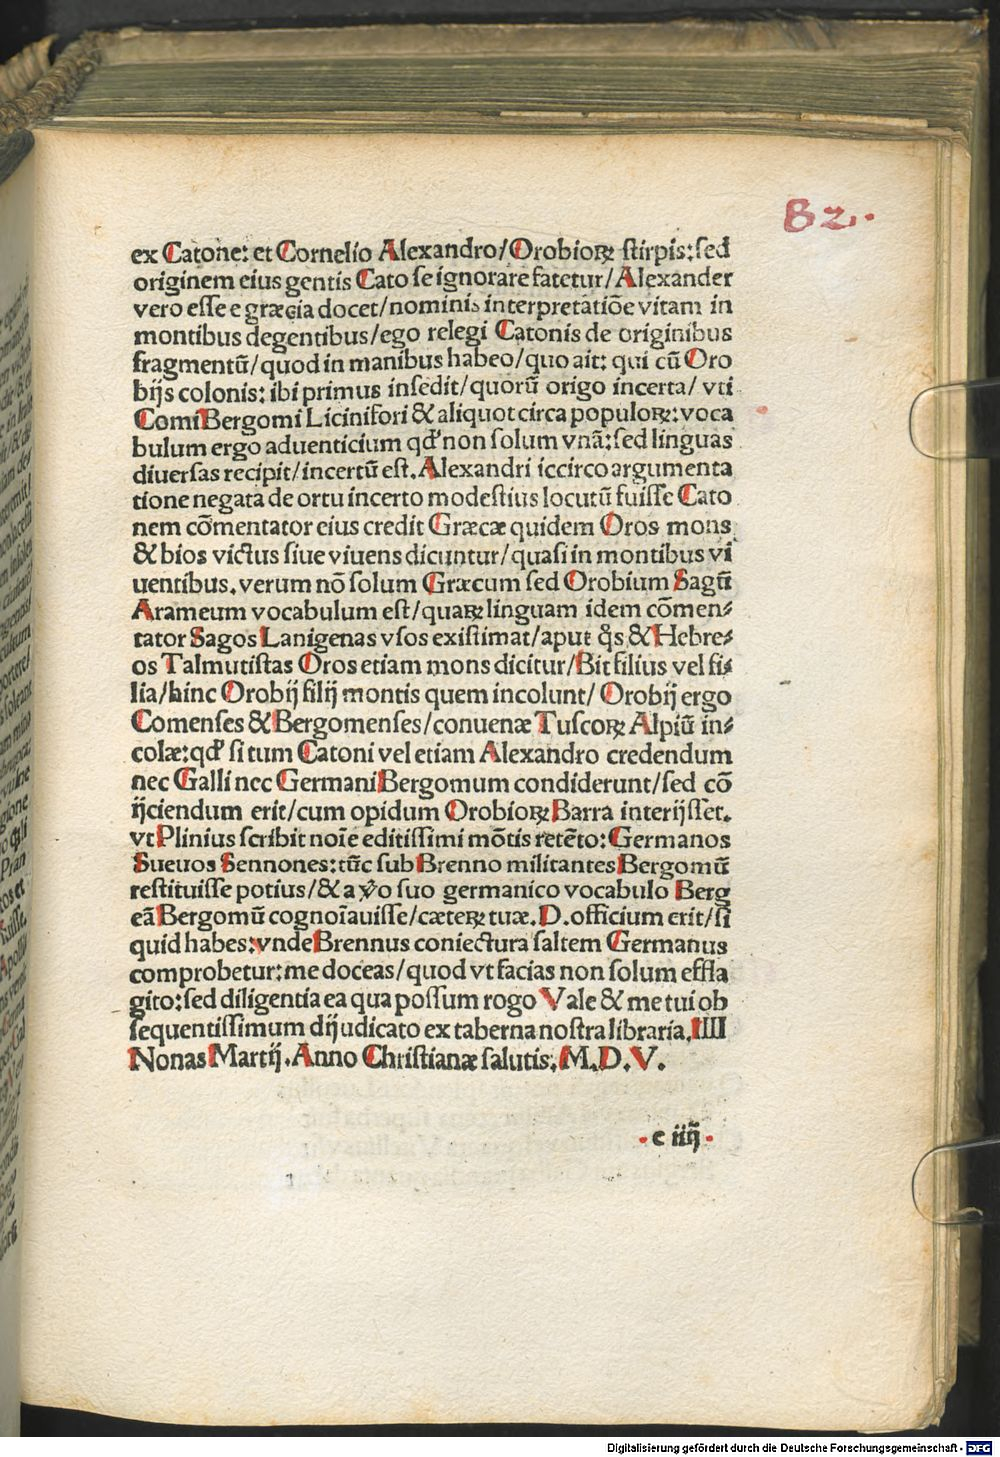 82.
ex Catone: et Cornelio Alexandro/Orobioꝝ stirpis: sed
originem eius gentis Cato se ignorare fatetur/Alexander
vero esse e græcia docet/nominis interpretatiōe vitam in
montibus degentibus/ego relegi Catonis de originibus
fragmentū/quod in manibus habeo/quo ait: qui cū Oro
bijs colonis: ibi primus insedit/quorū origo incerta/vti
Comi Bergomi Licinifori & aliquot circa populoꝝ: voca
bulum ergo aduenticium qd' non solum vnā: sed linguas
diuersas recipit/incertū est. Alexandri iccirco argumenta
tione negata de ortu incerto modestius locutū fuisse Cato
nem cōmentator eius credit Græcæ quidem Oros mons
& bios victus siue viuens dicuntur/quasi in montibus vi
uentibus. verum nō solum Græcum sed Orobium Sagū
Arameum vocabulum est/quaꝝ linguam idem cōmen⸗
tator Sagos Lanigenas vsos existimat/aput q̊s & Hebre⸗
os Talmutistas Oros etiam mons dicitur/Bit filius vel fi⸗
lia/hinc Orobij filij montis quem incolunt/Orobij ergo
Comenses & Bergomenses/conuenæ Tuscoꝝ Alpiū in⸗
colæ: qd' si tum Catoni vel etiam Alexandro credendum
nec Galli nec Germani Bergomum condiderunt/sed cō
ijciendum erit/cum opidum Orobioꝝ Barra interijsset.
vt Plinius scribit noīe editissimi mōtis retēto: Germanos
Sueuos Sennones: tūc sub Brenno militantes Bergomū
restituisse potius/& a vͦo suo germanico vocabulo Berg
eā Bergomū cognoīauisse/cæteꝝ tuæ. D. officium erit/si
quid habes: vnde Brennus coniectura saltem Germanus
comprobetur: me doceas/quod vt facias non solum effla
gito: sed diligentia ea qua possum rogo Vale & me tui ob
sequentissimum dijudicato ex taberna nostra libraria. IIII
Nonas Martij. Anno Christianæ salutis. M.D.V.
c iiij
Digitalisierung gefördert durch die Deutsche Forschungsgemeinschaft - DFG